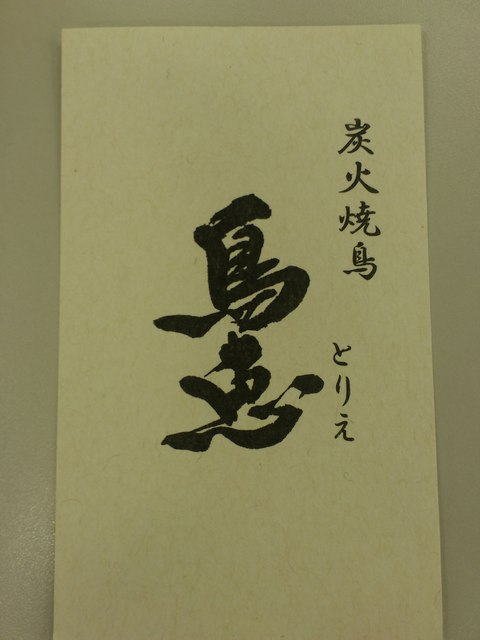 炭火焼鳥 とりえ
鳥恵